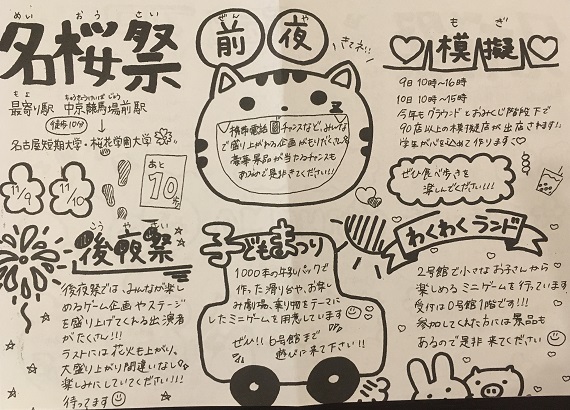 めい おう さい
名桜祭
もよ ちゅうきょうけいばじょうまえ
最寄り駅 中京競馬場前駅
徒歩10分
名古屋短期大学・桜花学園大学
11/9
11/10
あと
10
ぜん や
前夜
きてネ!!
携帯電話 チャンスなど、みんな
で盛り上がれる企画がもりだくさん
豪華景品が当たるチャンスも
あるので是非きてください!!
も ぎ
模擬
9日 10時〜16時
10日 10時〜15時
今年もグラウンドとおみくじ階段下で
90店以上の模擬店が出店されます!!
学生が心を込めて作ります
ぜひ食べ歩きを
楽しんでください!!!
こう や さい
後夜祭
後夜祭では、みんなが楽し
めるゲーム企画やステージ
を盛り上げてくれる出演者
がたくさん!!!
ラストには花火も上がり、
大盛り上がり間違いなし
楽しみにしていてください!!!
待ってます
子どもまつり
1000本の牛乳パックで
作った滑り台や、お楽し
み劇場、乗り物をテーマに
したミニゲームを用意しています
ぜひ!!6号館まで
遊びに来て下さい!!
わくわくランド
2号館で小さなお子さんから
楽しめるミニゲームを行っています
受付は0号館1階です!!!
参加してくれた方には景品も
あるので是非来てください